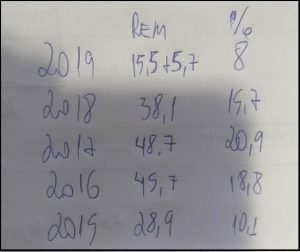 REM %
2019 15,5+5,7 8
2018 38,1 15,7
2017 48,7 20,9
2016 45,7 18,8
2015 28,9 10,1